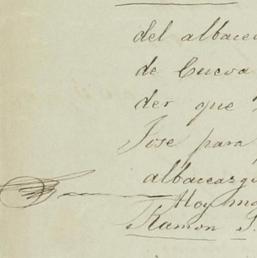 del albacea
de Cueva
der que
Jose para
albaceazgo
Hoy
Ramon